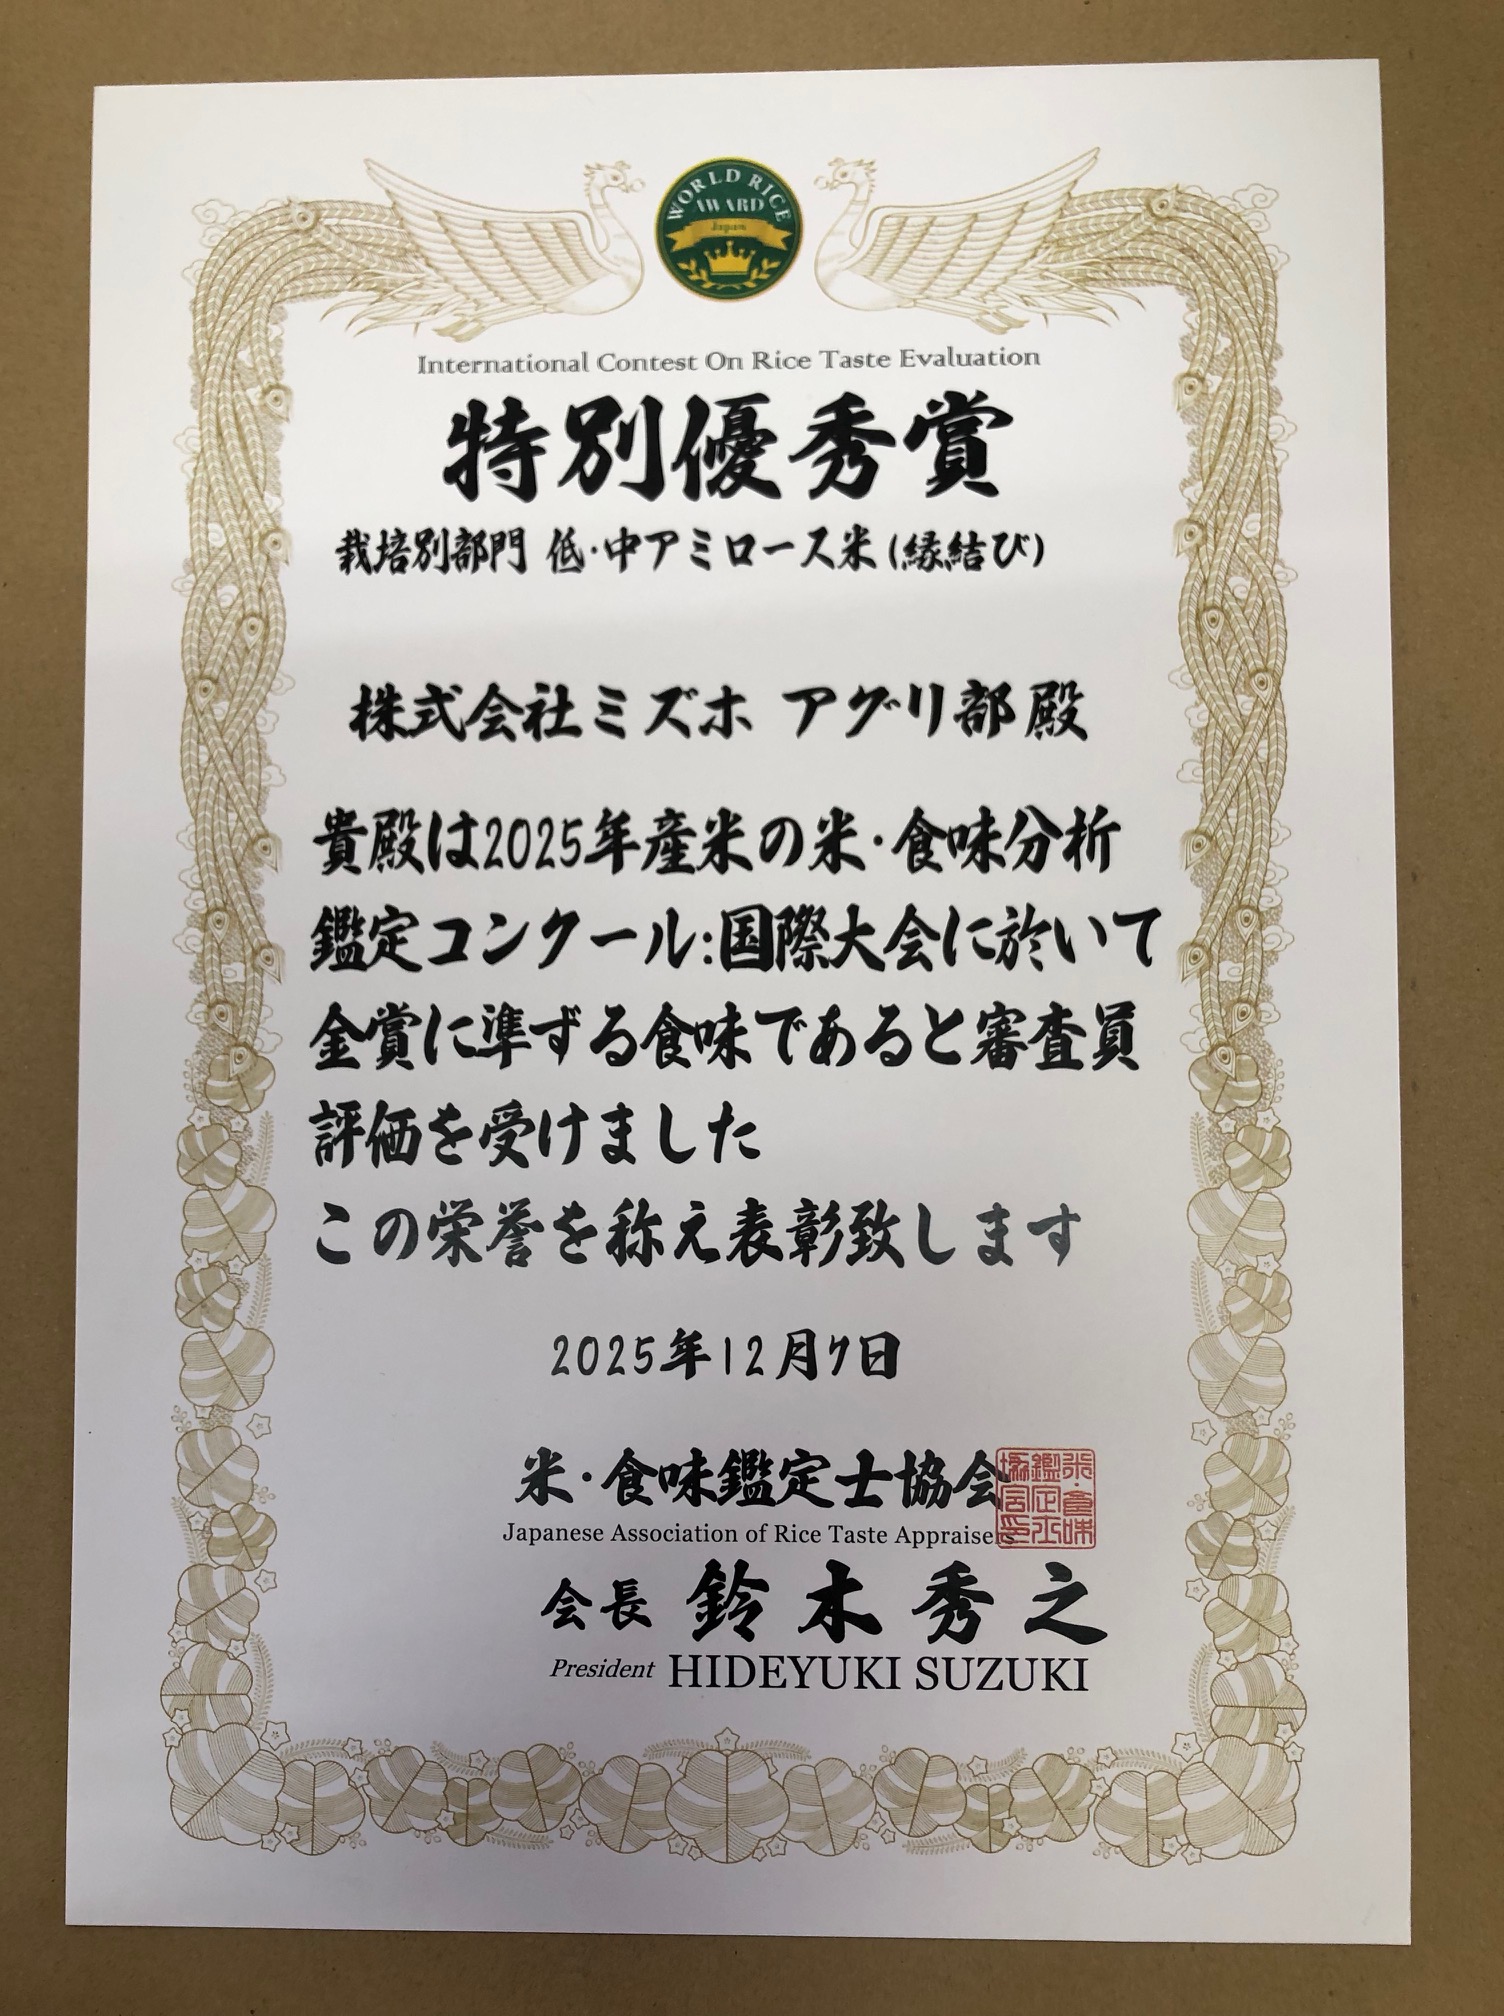 WORLD RICE
AWARD
Japan
International Contest On Rice Taste Evaluation
特別優秀賞
栽培別部門 低・中アミロース米(縁結び)
株式会社ミズホ アグリ部 殿
貴殿は2025年産米の米・食味分析
鑑定コンクール:国際大会に於いて
金賞に準ずる食味であると審査員
評価を受けました
この栄誉を称え表彰致します
2025年12月7日
米・食味鑑定士協会
Japanese Association of Rice Taste Appraisers
会長 鈴木秀之
President HIDEYUKI SUZUKI